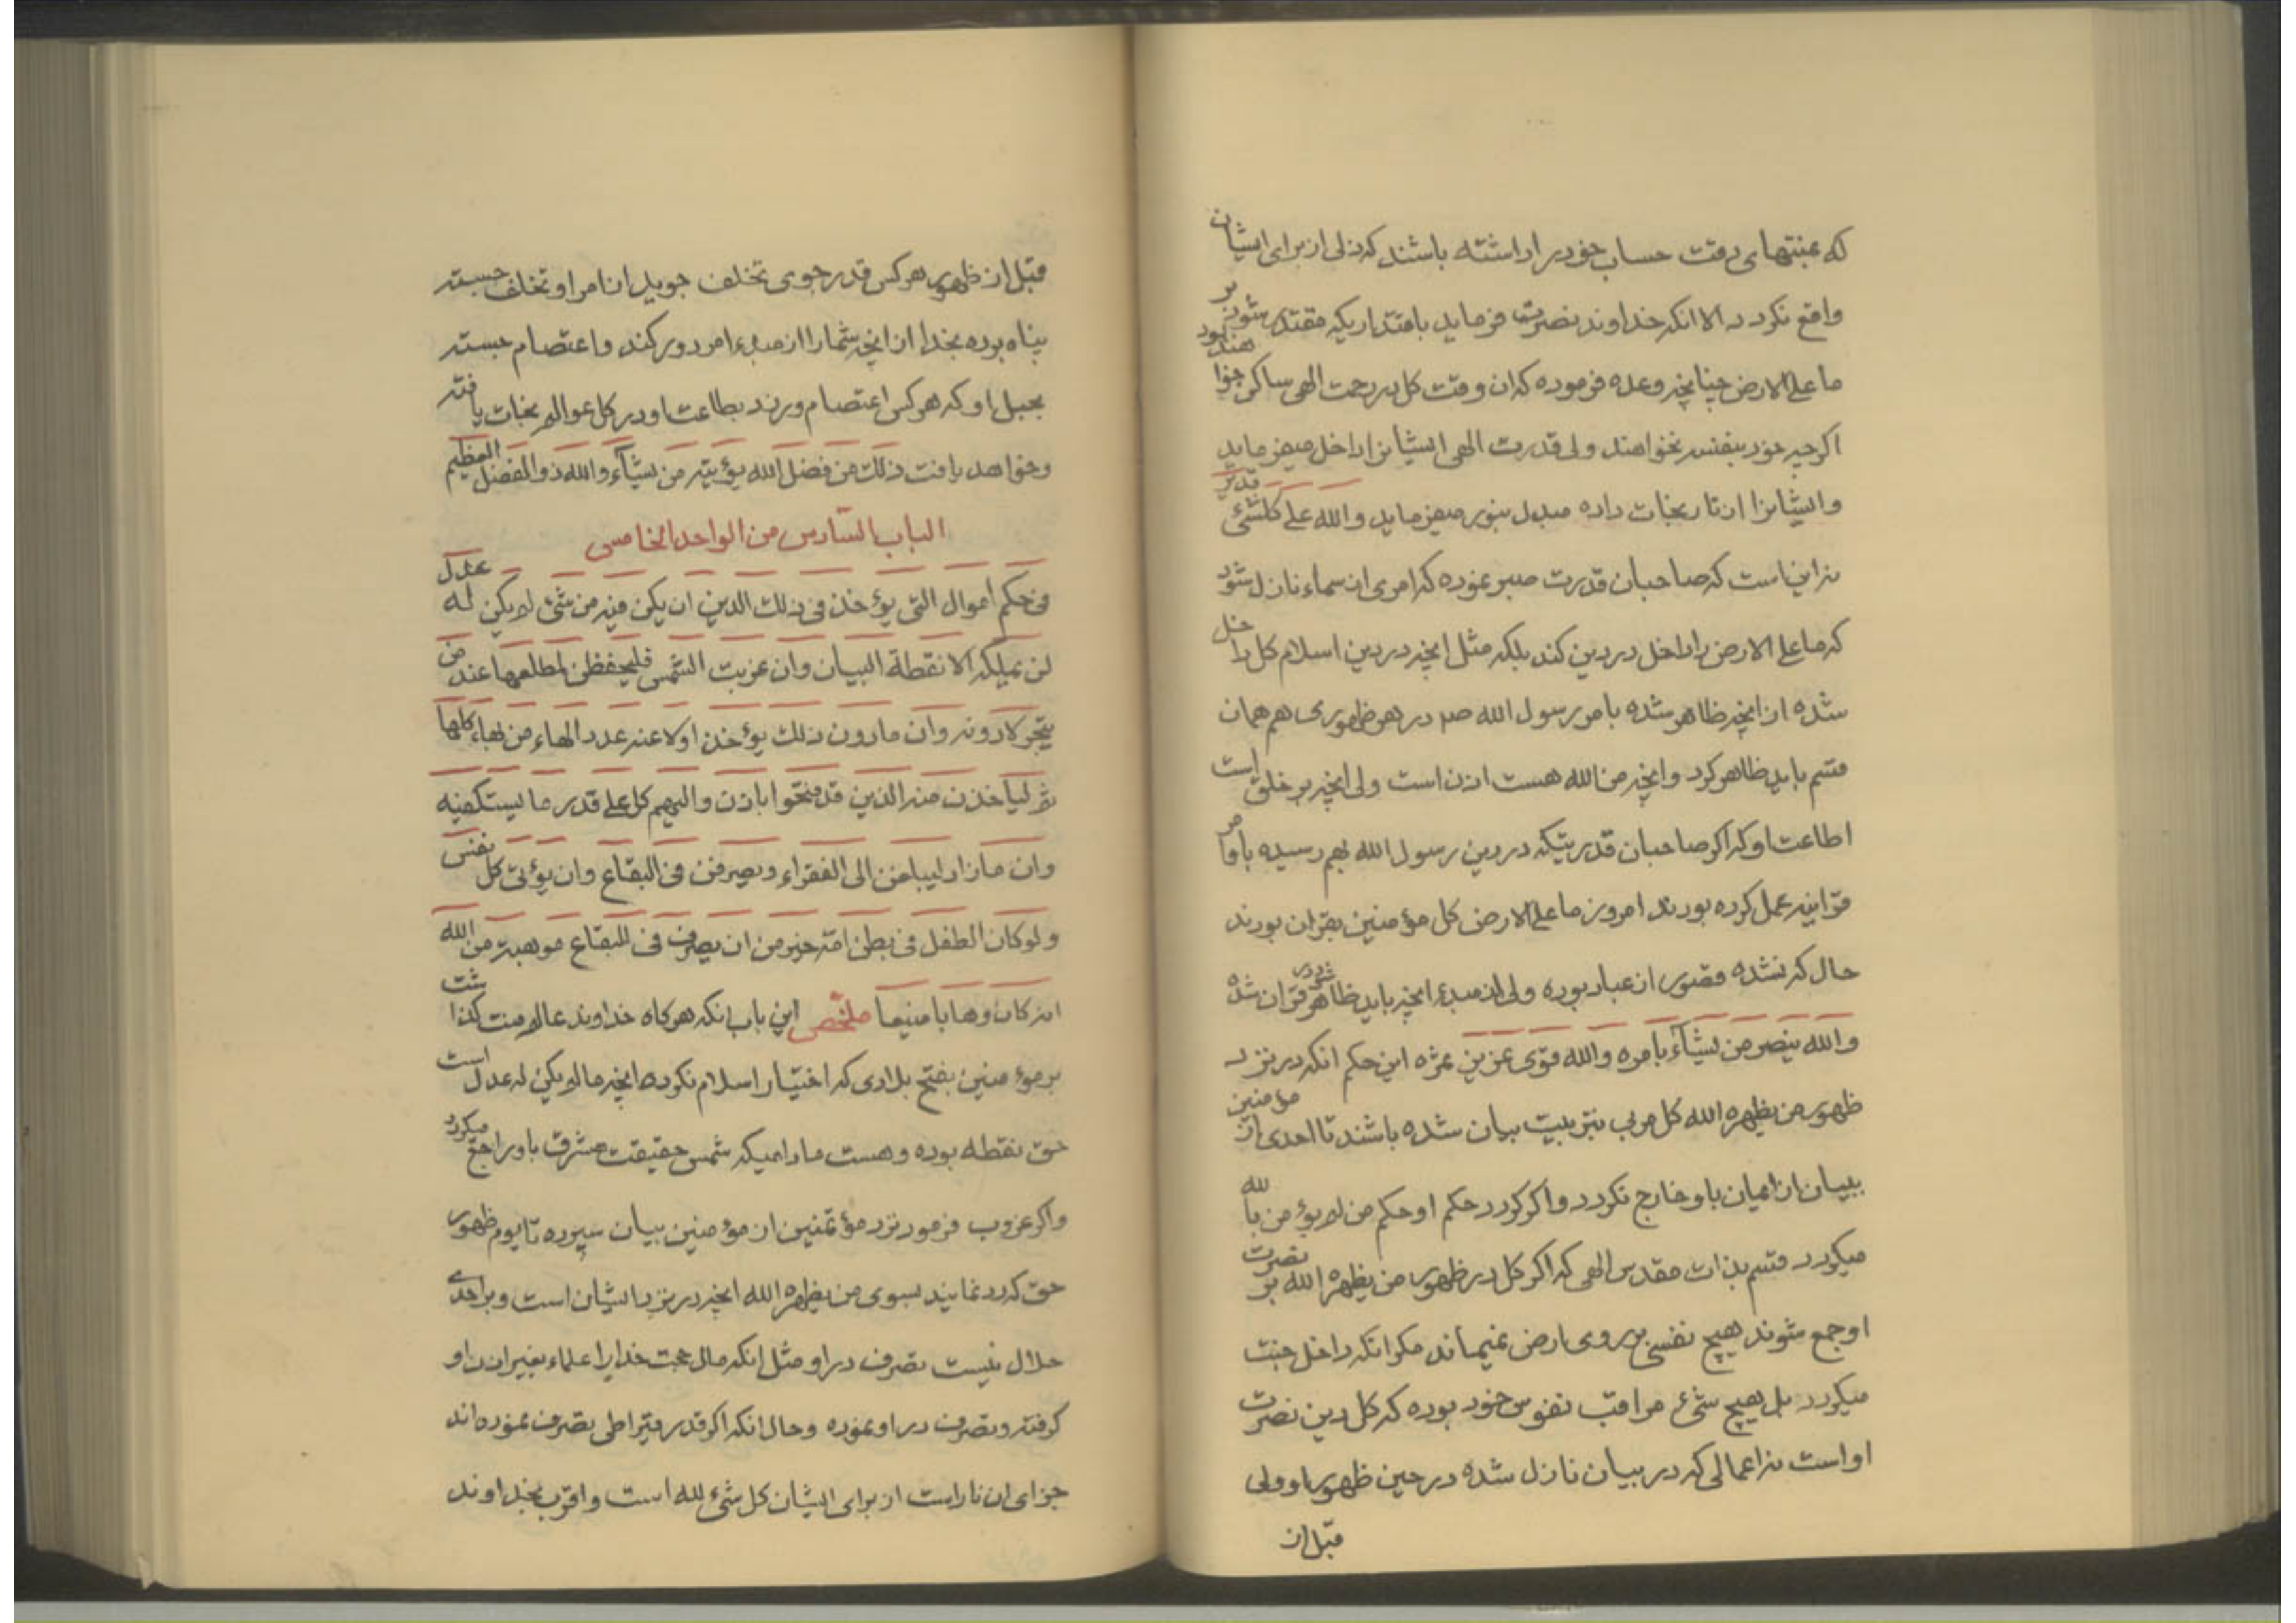 که بمنتهای دقت حساب خود را داشته باشند که ذلی از برای ایشان
واقع نکردد الا انکه خداوند نصرت فرماید باقتداریکه مقتدر شود بر
ما علی الارض چنانچه وعده فرموده که ان وقت کل در رحمت الهی ساکن خواهند بود
اکرچه خود بنفسه نخواهند ولی قدرت الهی ایشانرا داخل میفرماید
وایشانرا از نار نجات داده مبدل بنور میفرماید والله علی کلشیء قدیر
نه این است که صاحبان قدرت صبر نموده که امری از سماء نازل شود
که ما علی الارض را داخل در دین کند بلکه مثل انچه در دین اسلام کل داخل
شده از انچه ظاهر شده بامر رسول الله صم در هر ظهوری هم همان
قسم باید ظاهر کرد وانچه من الله هست اذن است ولی انچه بر خلق است
اطاعت او که اکر صاحبان قدرتیکه در دین رسول الله بهم رسیده باوامر
قرانیه عمل کرده بودند امروز ما علی الارض کل مؤمنین بقران بودند
حال که نشده قصور از عباد بوده ولی از مبدء انچه باید ظاهر شود در قران شده
والله ینصر من یشآء بامره والله قوی عزیز ثمره این حکم انکه در نزد
ظهور من یظهره الله کل مربی بتربیت بیان شده باشند تا احدی از مؤمنین
ببیان از ایمان باو خارج نکردد واکر کردد حکم او حکم من لم یؤمن بالله
میکردد قسم بذات مقدس الهی که اکر کل در ظهور من یظهره الله بر نصرت
او جمع شوند هیچ نفسی بر روی ارض نمیماند مکر انکه داخل جنت
میکردد بل هیچ شیء مراقب نفوس خود بوده که کل دین نصرت
او است نه اعمالی که در بیان نازل شده در حین ظهور او ولی
قبل از
قبل از ظهور هر کس قدر جوی تخلف جوید از امر او تخلف جسته
پناه بوده بخدا از انچه شما را از مبدء امر دور کند واعتصام جسته
بحبل او که هر کس اعتصام ورزد بطاعت او در کل عوالم نجات یافته
وخواهد یافت ذلک من فضل الله یؤتیه من یشآء والله ذو الفضل العظیم
الباب السّادس من الواحد الخامس
فی حکم اموال التی یؤخذ فی ذلک الدین ان یکن فیه من شیء لا یکن له عدل
لن یملیکه الا نقطة البیان وان غربت الشمس فلیحفظن لمطلعها عند من
یتجر لادونه وان مادون ذلک یؤخذ اولا عنه عدد الهاء من بهاء کلها
ثم لیاخذن منه الذین قد فتحوا باذن والیهم کل علی قدر ما یستکفیه
وان مازاد لیباعن الی الفقراء ویصرفن فی البقاع وان یؤتی کل نفس
ولو کان الطفل فی بطن امه خیر من ان یصرف فی البقاع موهبة من الله
انه کان وهابا منیعا ملخّص این باب انکه هر کاه خداوند عالم منت کذاشت
بر مؤمنین بفتح بلادی که اختیار اسلام نکرده انچه ما لم یکن له عدل است
حق نقطه بوده وهست مادامیکه شمس حقیقت مشرق باو راجع میکردد
واکر غروب فرمود نزد مؤتمنین از مؤمنین بیان سپرده تا یوم ظهور
حق که رد نمایند بسوی من یظهره الله انچه در نزد ایشان است وبر احدی
حلال نیست تصرف در او مثل انکه مال حجت خدا را علماء بغیر اذن او
کرفته وتصرف در او نموده وحال انکه اکر قدر قیراطی تصرف نموده اند
جزای ان نار است از برای ایشان کل شیء لله است واقرب بخداوند